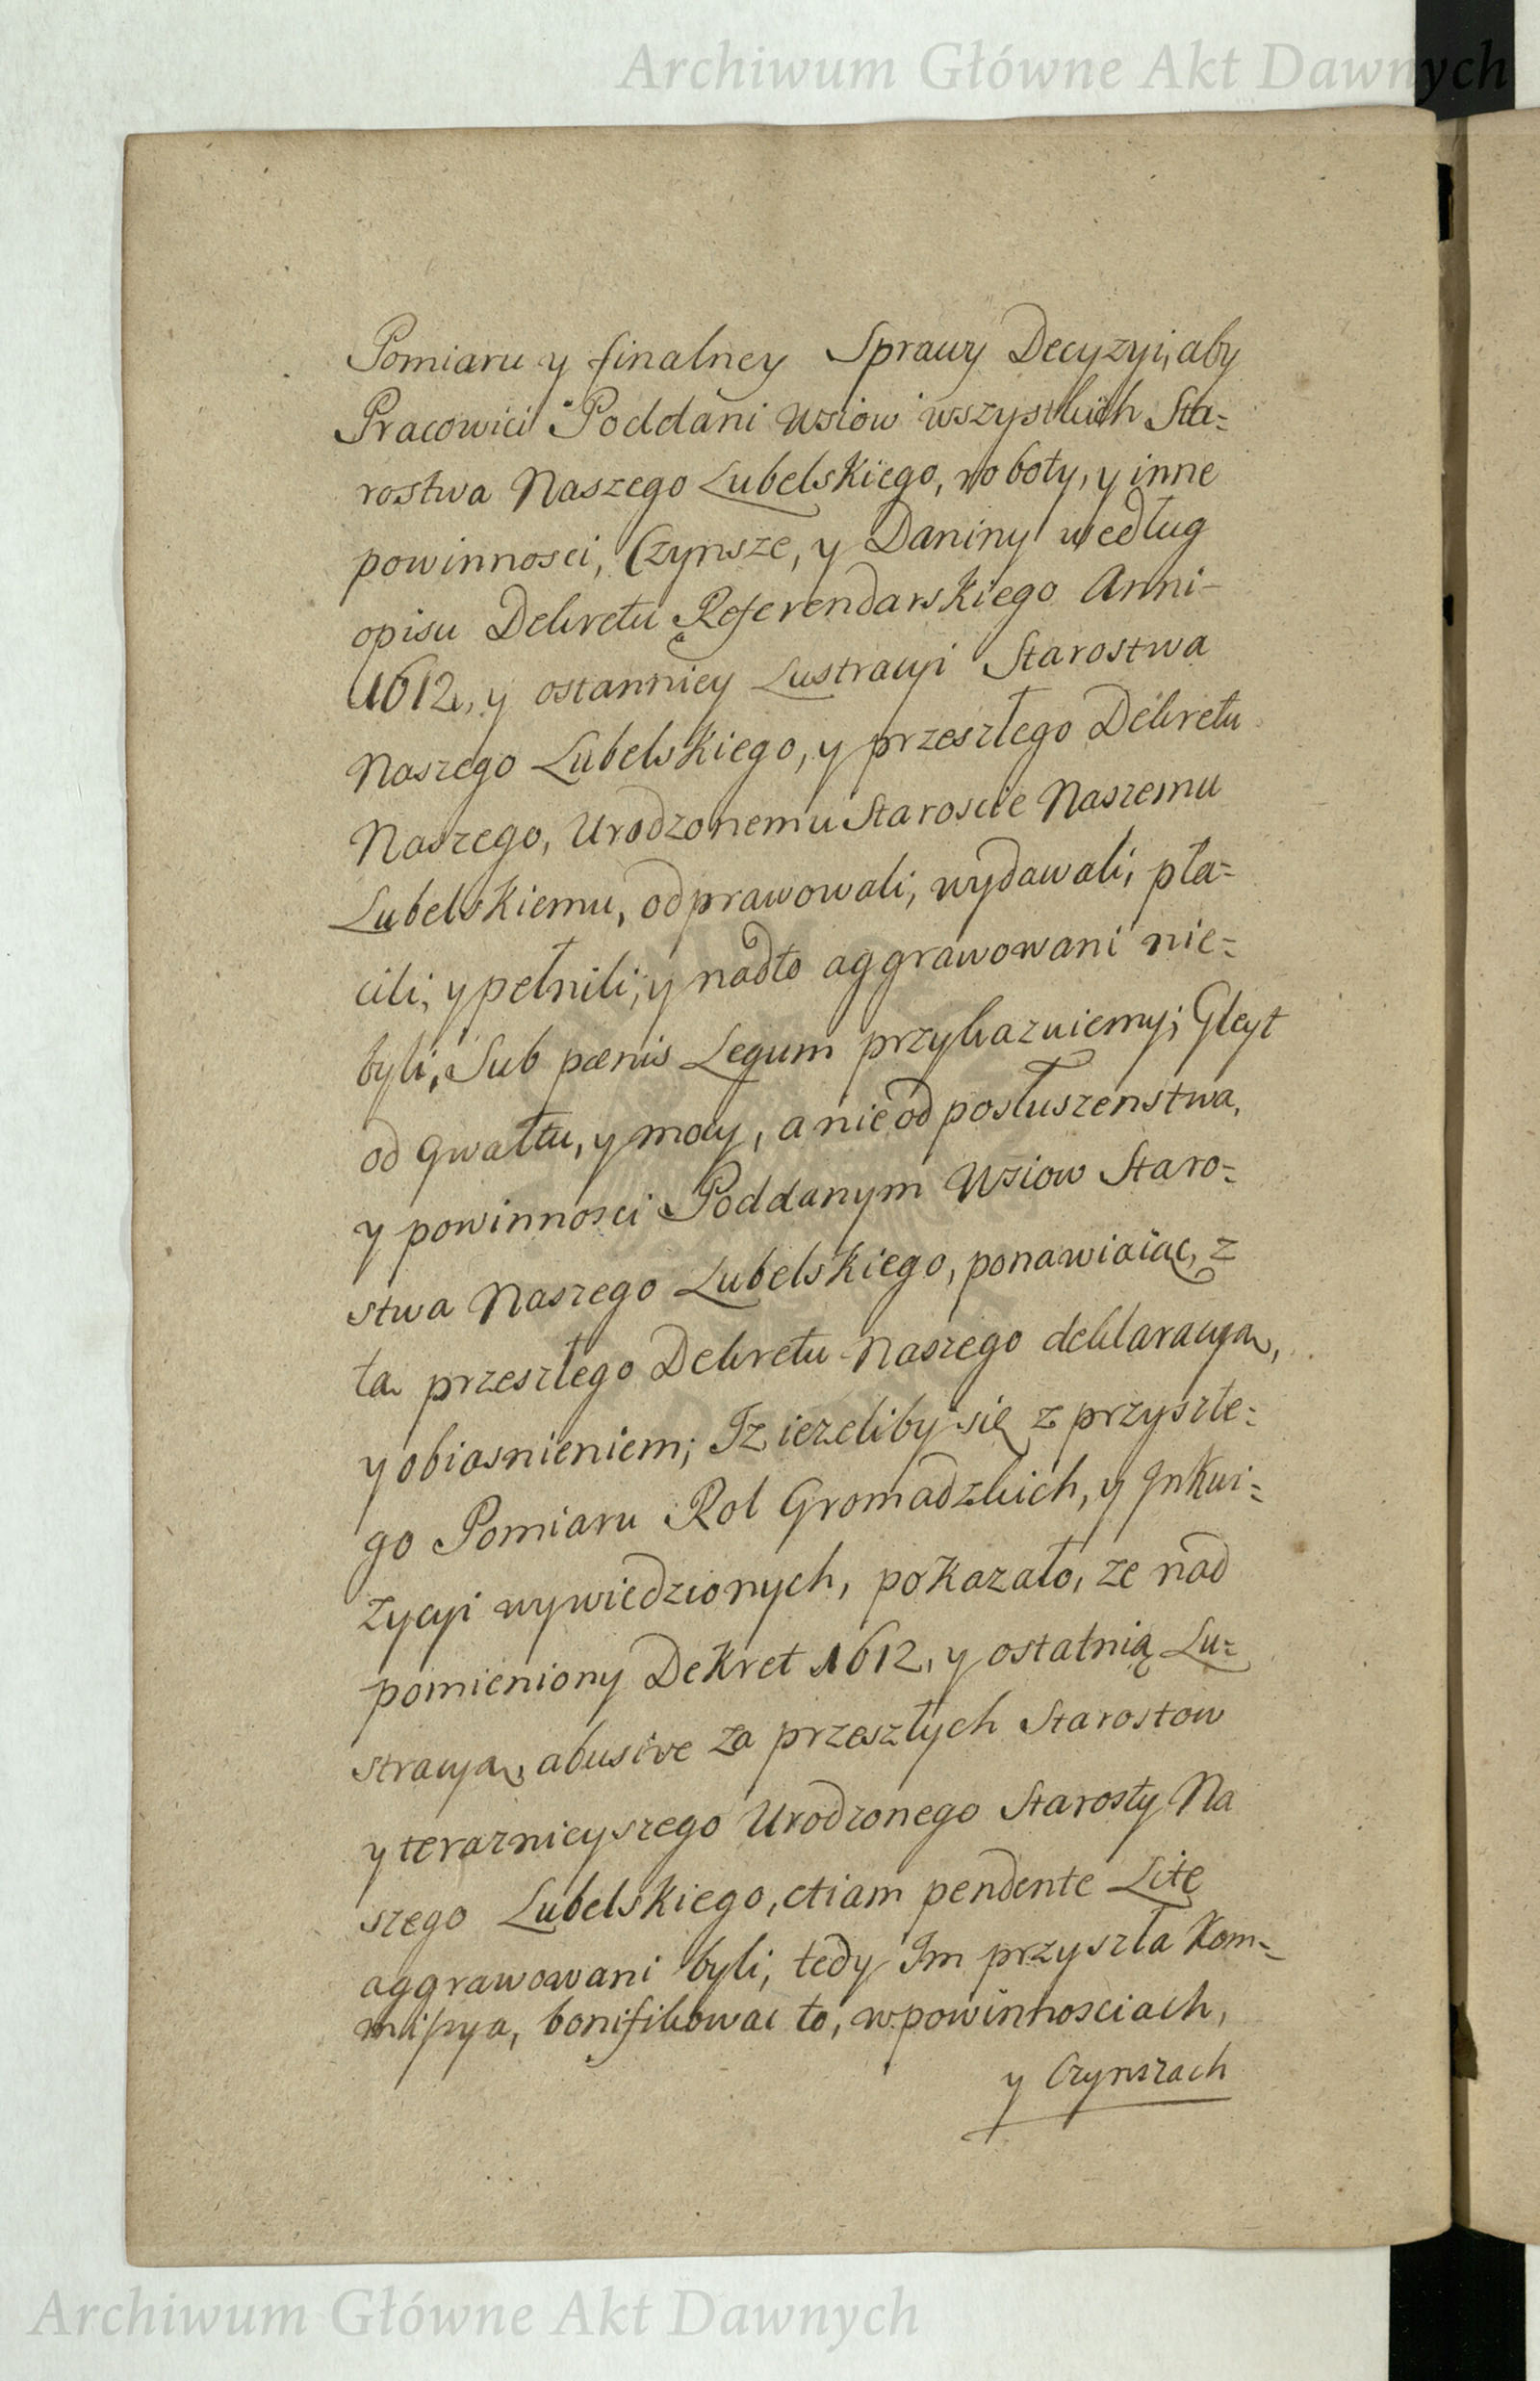 Archiwum Główne Akt Dawnych
Pomiaru y finalney Sprawy Decyzyi, aby
Pracowici Poddani Wsiow wszystkich Sta=
rostwa Naszego Lubelskiego, roboty, y inne
powinnosci, Czynsze, y Daniny według
opisu Dekretu Referendarskiego Anni
1612, y ostanniey Lustracyi Starostwa
Naszego Lubelskiego, y przeszłego Dekretu
Naszego, Urodzonemu Staroscie Naszemu
Lubelskiemu, odprawowali, wydawali, pła=
cili, y pełnili, y nadto aggrawowani nie=
byli, Sub pænis Legum przykazuiemy; Gleyt
od gwałtu, y mocy, a nie od posłuszenstwa,
y powinnosci Poddanym Wsiow Staro=
stwa Naszego Lubelskiego, ponawiaiąc, z
tą przeszłego Dekretu Naszego deklaracyą,
y obiasnieniem; Iz iezeliby się z przyszłe=
go Pomiaru Rol Gromadzkich, y Inkwi=
zycyi wywiedzionych, pokazało, ze nad
pomieniony Dekret 1612, y ostatnią Lu=
stracyą, abusive za przeszłych Starostow
y teraznieyszego Urodzonego Starosty Na
szego Lubelskiego, etiam pendente Lite
aggrawowani byli, tedy Im przyszła Kom=
missya, bonifikowac to, w powinnosciach,
y Czynszach
Archiwum Główne Akt Dawnych